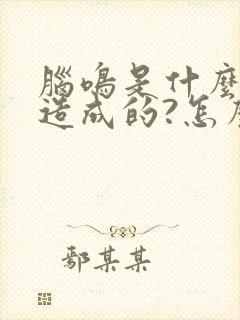 腦鳴是什麼
造成的?怎
鄢某某